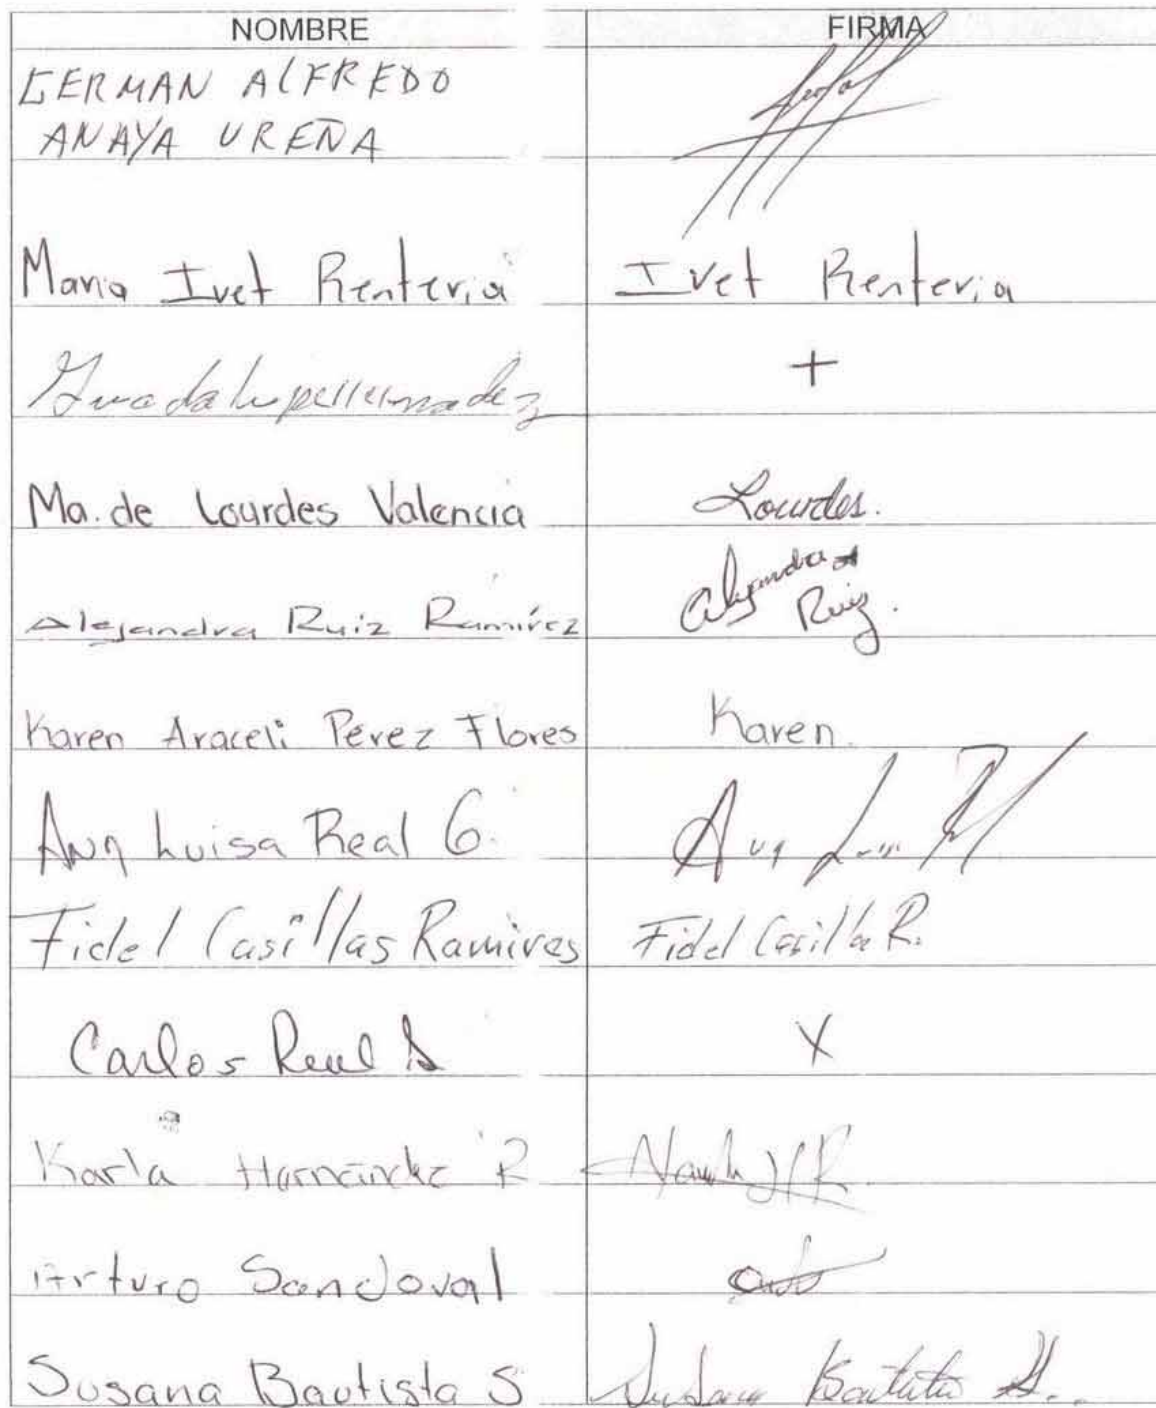 NOMBRE FIRMA
GERMAN ALFREDO
ANAYA UREÑA
Maria Ivet Renteria Ivet Renteria
Guadalupe +
Ma. de Lourdes Valencia Lourdes.
Alejandra Ruiz Ramírez Alejandra Ruiz.
Karen Araceli Pérez Flores Karen.
Ana Luisa Real G. Ana
Fidel Casillas Ramires Fidel Casilla R.
Carlos Real X
Karla R
Arturo Sandoval
Susana Bautista S Susana Bautista S..